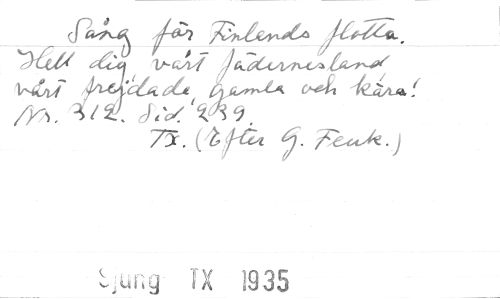 Sång för Finlands flotta.
Hell dig vårt fädernesland
vårt frejdade gamla och kära!
Nr. 312. Sid. 239.
Tx. (Efter G. Fenk.)
Sjung TX 1935